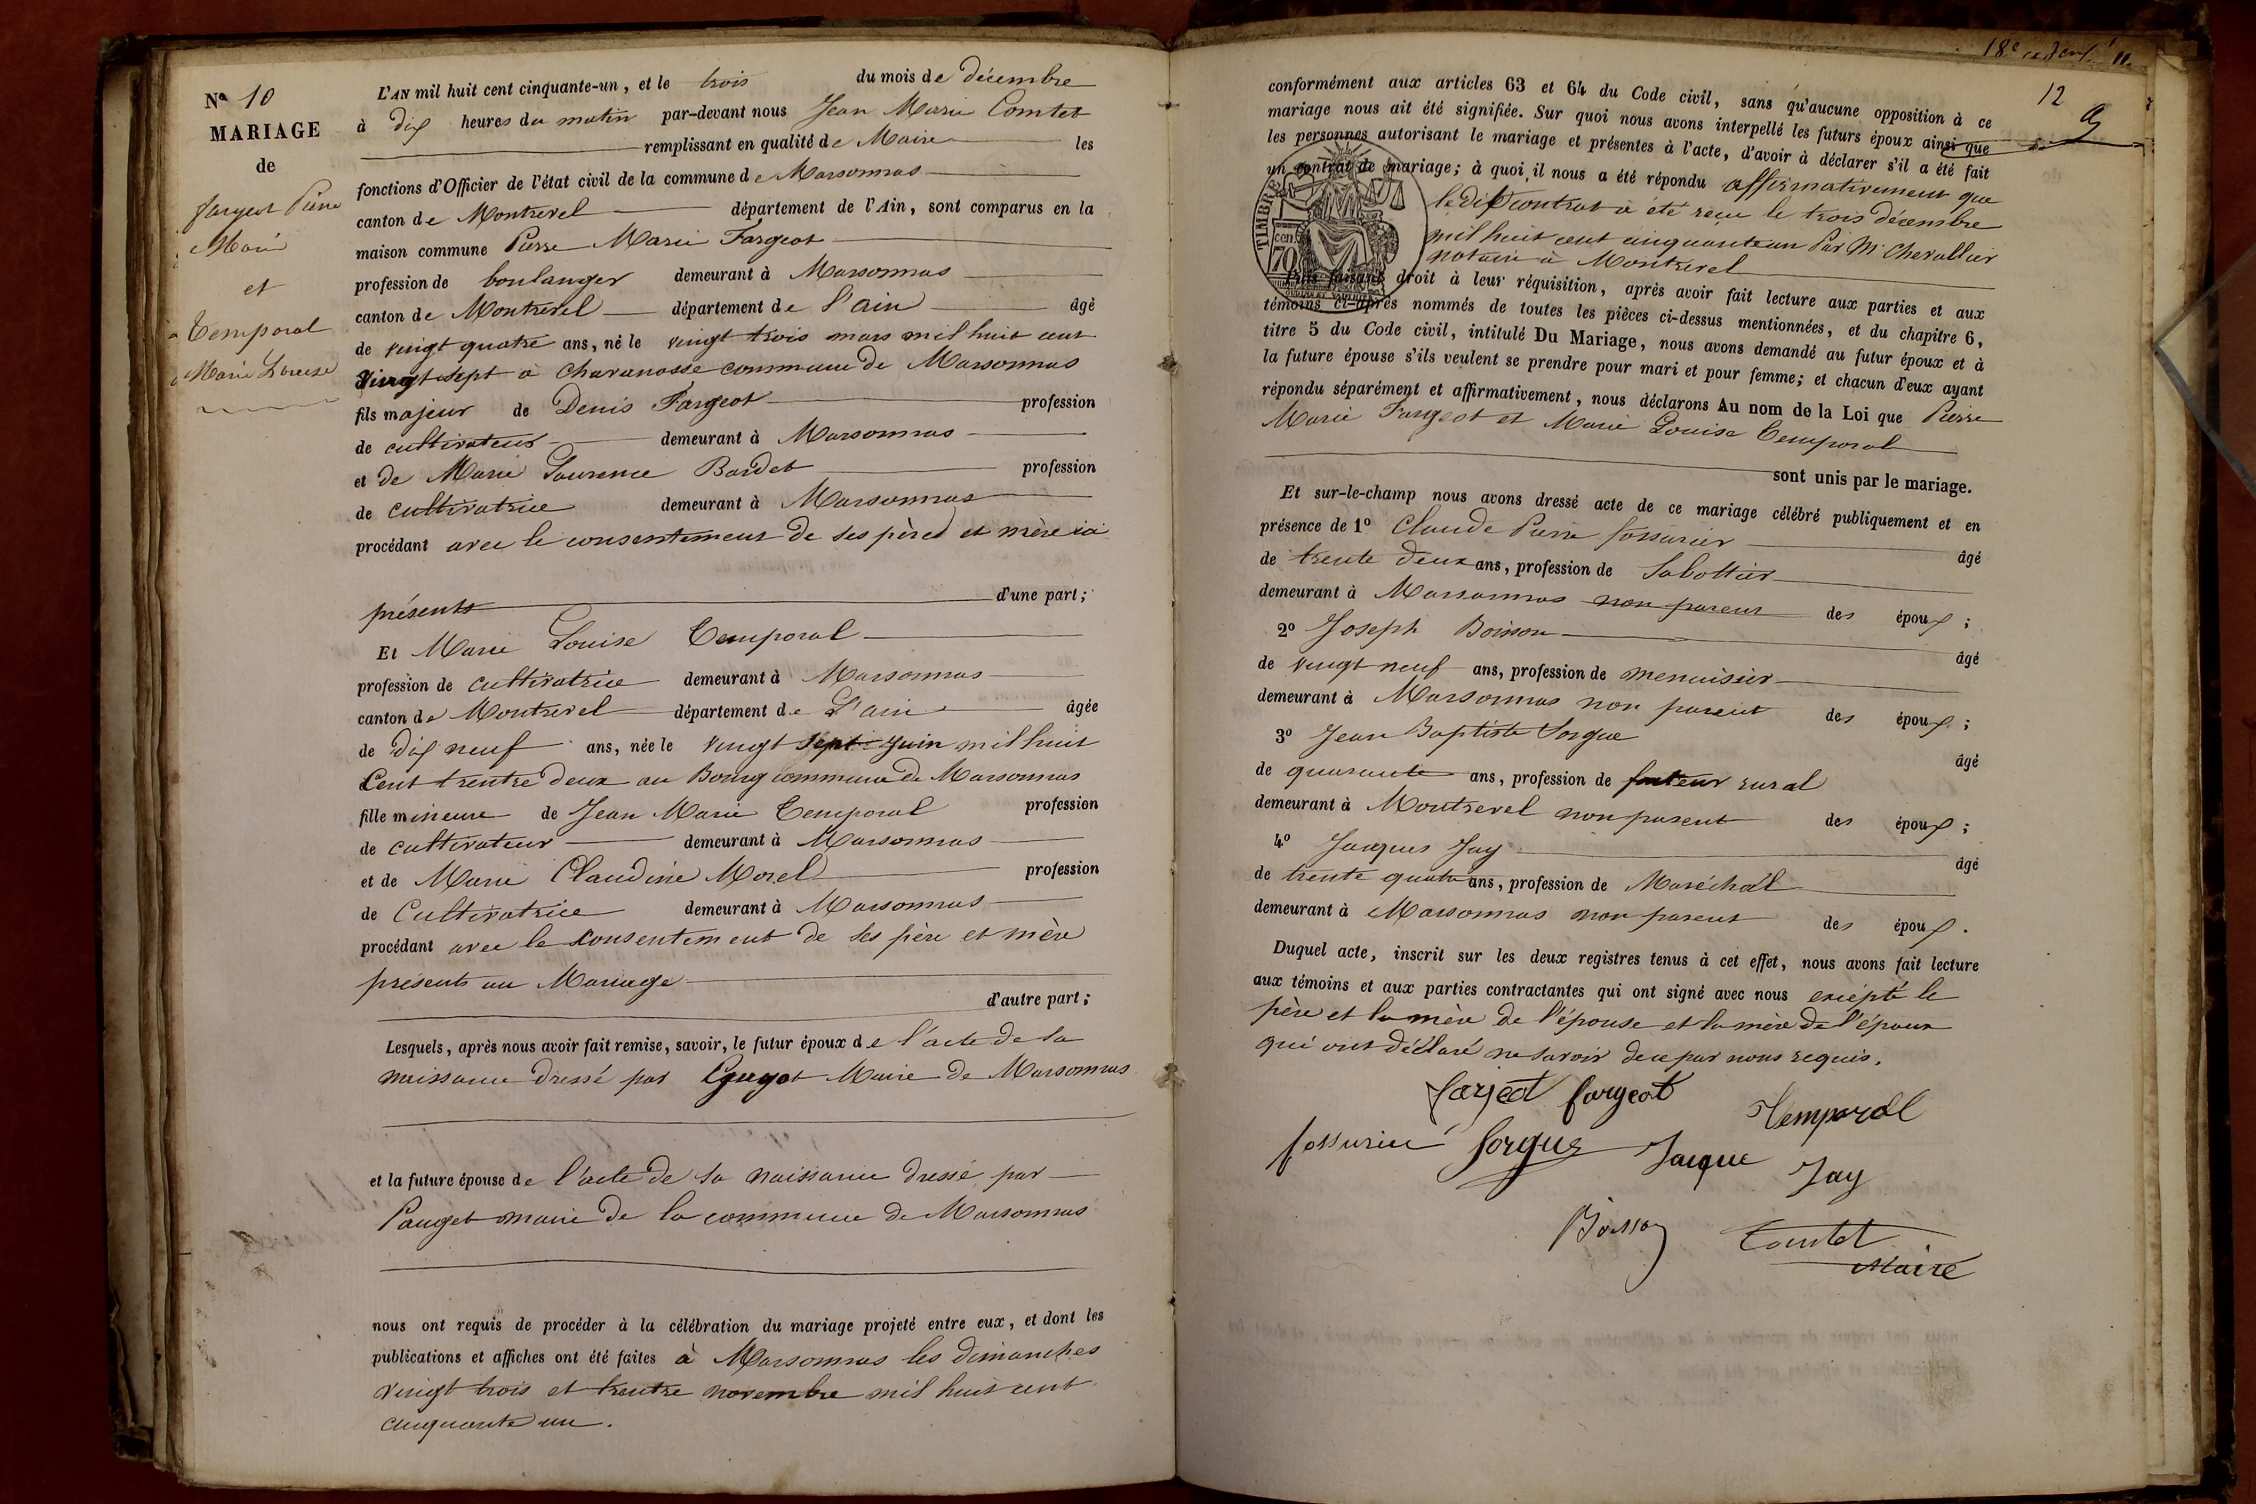 N° 10
MARIAGE
de
fargeot Pierre
Marie
et
Temporal
Marie Louise
L'AN mil huit cent cinquante-un, et le trois du mois de décembre
à dix heures du matin par-devant nous Jean Marie Comtet
remplissant en qualité de Maire les
fonctions d'Officier de l'état civil de la commune de Marsonnas
canton de Montrevel département de l'Ain, sont comparus en la
maison commune Pierre Marie Fargeot
profession de boulanger demeurant à Marsonnas
canton de Montrevel département de l'ain âgé
de vingt quatre ans, né le vingt trois mars mil huit cent
vingt sept à Charanosse commune de Marsonnas
fils majeur de Denis Fargeot profession
de cultivateur demeurant à Marsonnas
et de Marie Laurence Bardet profession
de cultivatrice demeurant à Marsonnas
procédant avec le consentement de ses pères et mère ici
présents d'une part;
Et Marie Louise Temporal
profession de cultivatrice demeurant à Marsonnas
canton de Montrevel département de L'ain âgée
de dix neuf ans, née le vingt sept juin mil huit
Cent trentre deux au Bourg commune de Marsonnas
fille mineure de Jean Marie Temporal profession
de cultivateur demeurant à Marsonnas
et de Marie Claudine Morel profession
de Cultivatrice demeurant à Marsonnas
procédant avec le consentement de ses père et mère
présents au Mariage
d'autre part;
Lesquels, après nous avoir fait remise, savoir, le futur époux de l'acte de sa
naissance dressé par Guyot Maire de Marsonnas
et la future épouse de l'acte de sa naissance dressé par
Pauget maire de la commune de Marsonnas
nous ont requis de procéder à la célébration du mariage projeté entre eux, et dont les
publications et affiches ont été faites à Marsonnas les dimanches
vingt trois et trentre novembre mil huit cent
cinquante un.
12
conformément aux articles 63 et 64 du Code civil, sans qu'aucune opposition à ce
mariage nous ait été signifiée. Sur quoi nous avons interpellé les futurs époux ainsi que
les personnes autorisant le mariage et présentes à l'acte, d'avoir à déclarer s'il a été fait
un contrat de mariage; à quoi il nous a été répondu affirmativement que
le dit contrat a été reçu le trois décembre
mil huit cent cinquante un Par Mr Chevallier
notaire à Montrevel
TIMBRE
70 cen.
droit à leur réquisition, après avoir fait lecture aux parties et aux
témoins ci-après nommés de toutes les pièces ci-dessus mentionnées, et du chapitre 6,
titre 5 du Code civil, intitulé Du Mariage, nous avons demandé au futur époux et à
la future épouse s'ils veulent se prendre pour mari et pour femme; et chacun d'eux ayant
répondu séparément et affirmativement, nous déclarons Au nom de la Loi que Pierre
Marie Fargeot et Marie Louise Temporal
sont unis par le mariage.
Et sur-le-champ nous avons dressé acte de ce mariage célébré publiquement et en
présence de 1° Claude Pierre fossurier
âgé
de trente deux ans, profession de Sabottier
demeurant à Marsonnas non parent des époux;
2° Joseph Boisson
âgé
de vingt neuf ans, profession de menuisier
demeurant à Marsonnas non parent des époux;
3° Jean Baptiste Sorgue
âgé
de quarante ans, profession de facteur rural
demeurant à Montrevel non parent des époux;
4° Jacques Jay
âgé
de trente quatre ans, profession de Maréchal
demeurant à Marsonnas non parent des époux.
Duquel acte, inscrit sur les deux registres tenus à cet effet, nous avons fait lecture
aux témoins et aux parties contractantes qui ont signé avec nous excépté le
père et la mère de l'épouse et la mère de l'époux
qui ont déclaré ne savoir de ce par nous requis.
farjeot fargeot
Temporal
fossurier Sorgue Jacque Jay
Boisson Comtet
Maire